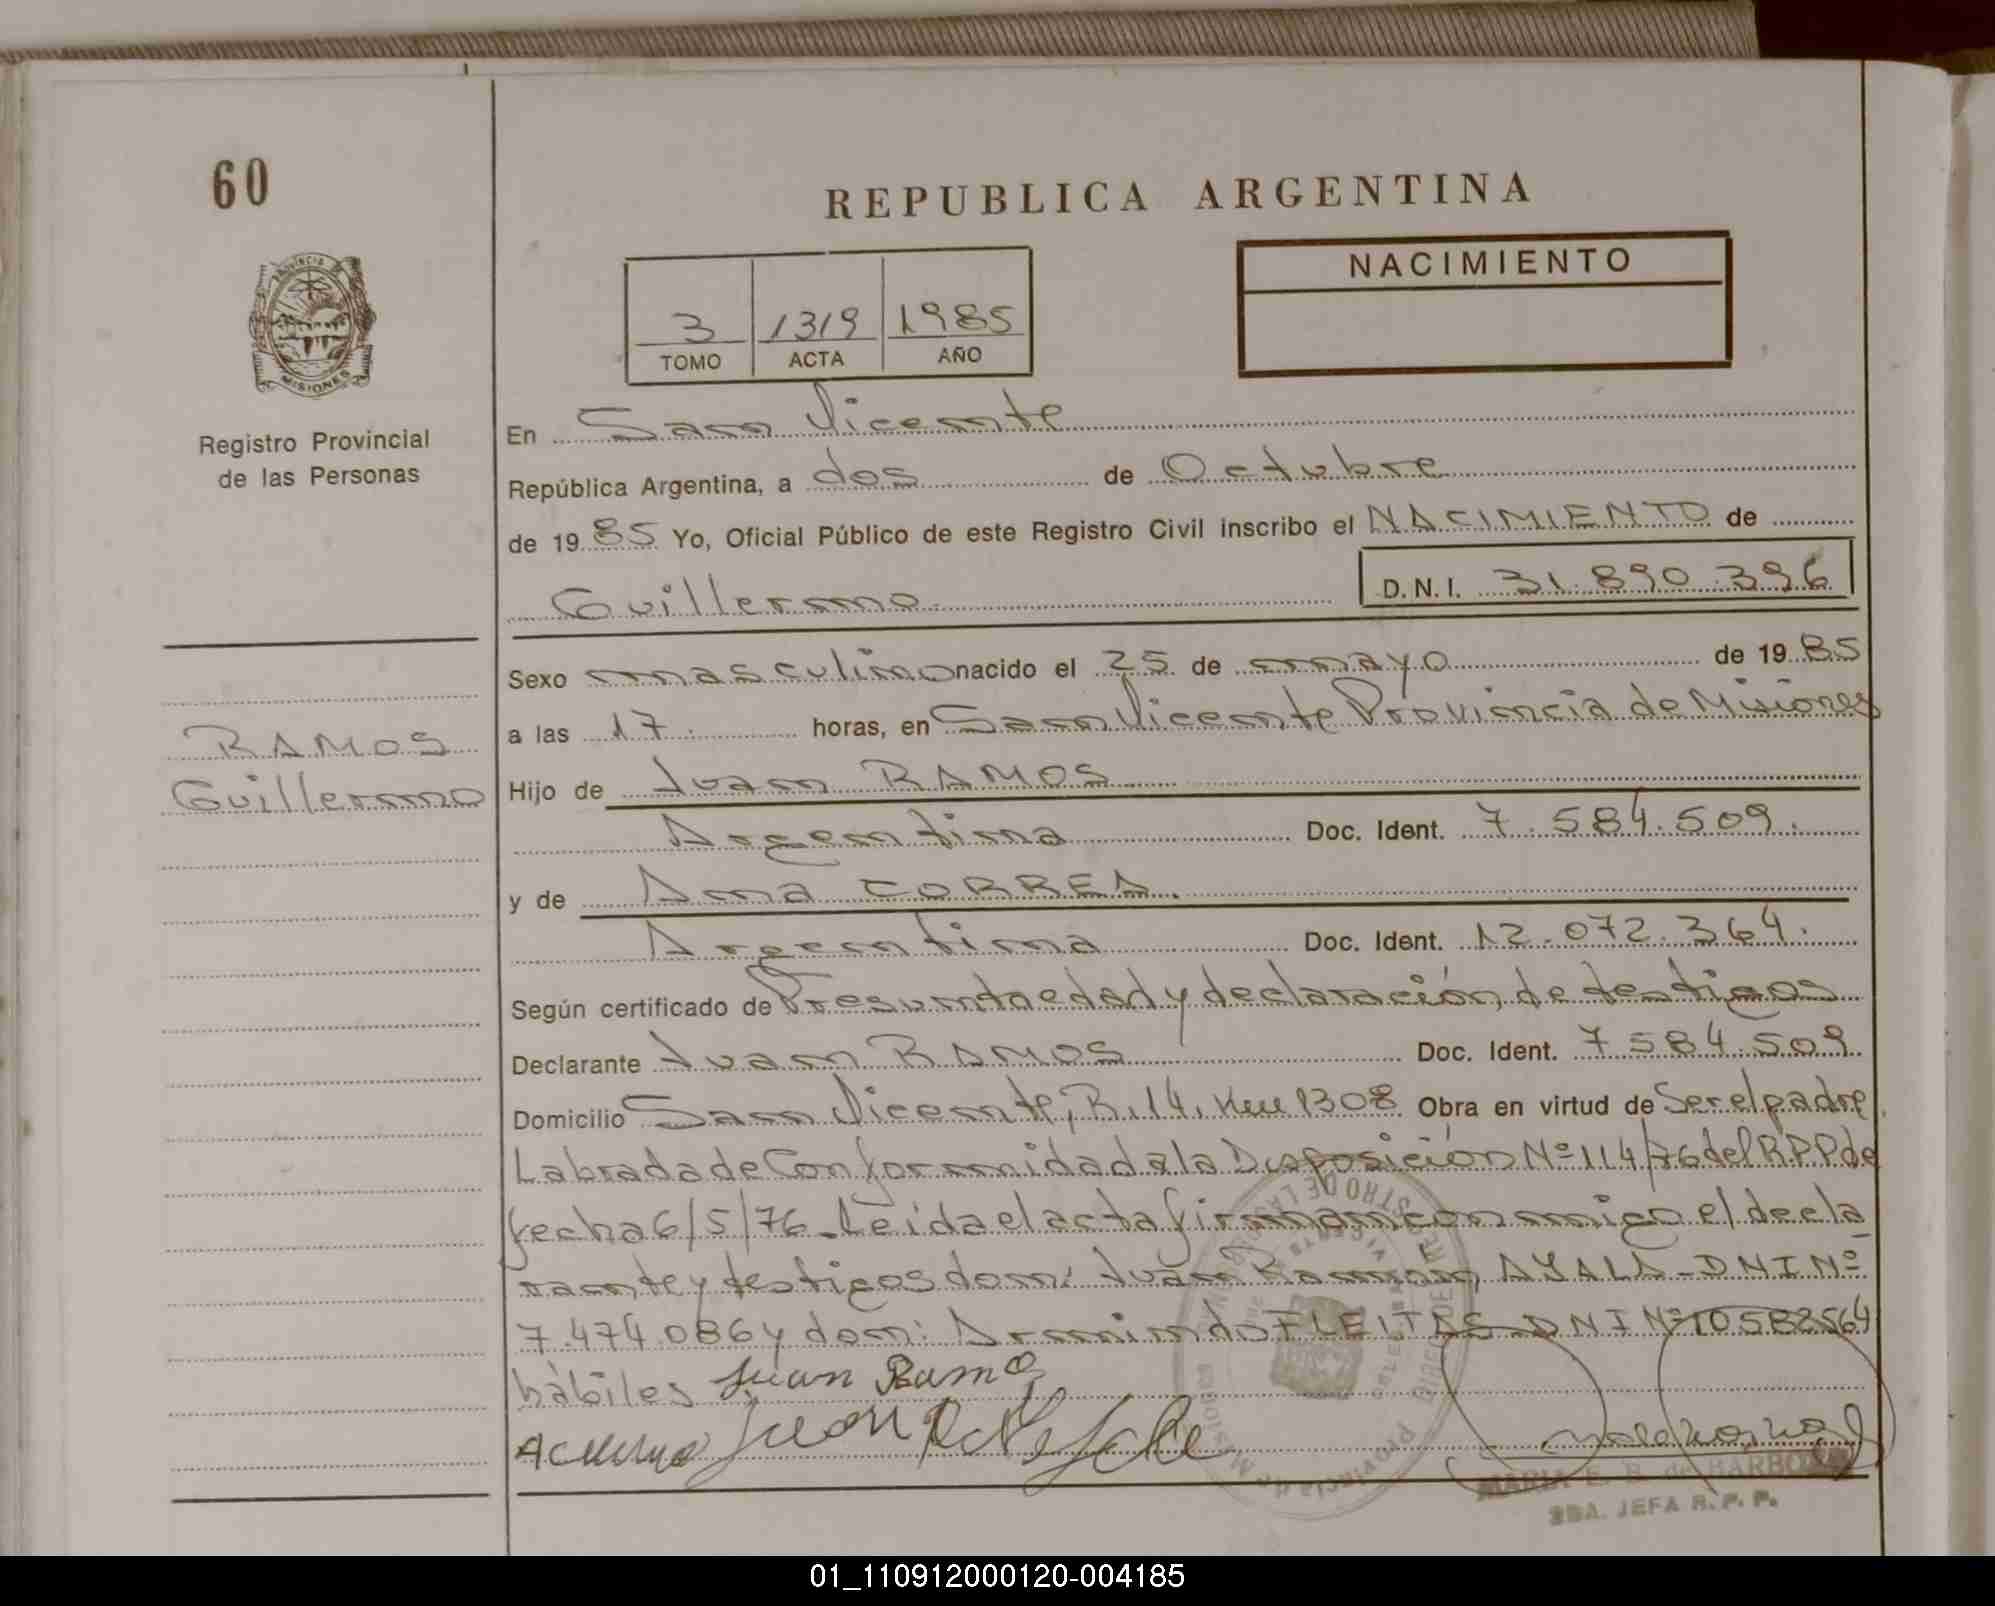 60
REPUBLICA ARGENTINA
PROVINCIA DE
MISIONES
Registro Provincial
de las Personas
3 1319 1985
TOMO ACTA AÑO
NACIMIENTO
En San Vicente
República Argentina, a dos de Octubre
de 1985 Yo, Oficial Público de este Registro Civil inscribo el NACIMIENTO de
Guillermo D.N.I. 31.890.396
Sexo masculino nacido el 25 de mayo de 1985
a las 17. horas, en San Vicente Provincia de Misiones
RAMOS
Guillermo
Hijo de Juan RAMOS
Argentina Doc. Ident. 7.584.509.
y de Ana CORREA.
Argentina Doc. Ident. 12.072.364.
Según certificado de Presunta edad y declaración de testigos
Declarante Juan RAMOS Doc. Ident. 7.584.509
Domicilio San Vicente, R.14, Km 1308 Obra en virtud de Ser el padre
Labrada de Conformidad a la Disposición Nº 114/76 del RPP de
fecha 6/5/76. Leida el acta firman conmigo el decla
rante y testigos don: Juan Ramon AYALA-DNI Nº
7.474.086 y don: Armindo FLEITAS DNI Nº 10582564
hábiles Juan Ramos
MARIA E. B. de BARBOZA
2DA. JEFA R. P. P.
Provincia de Misiones
01_110912000120-004185